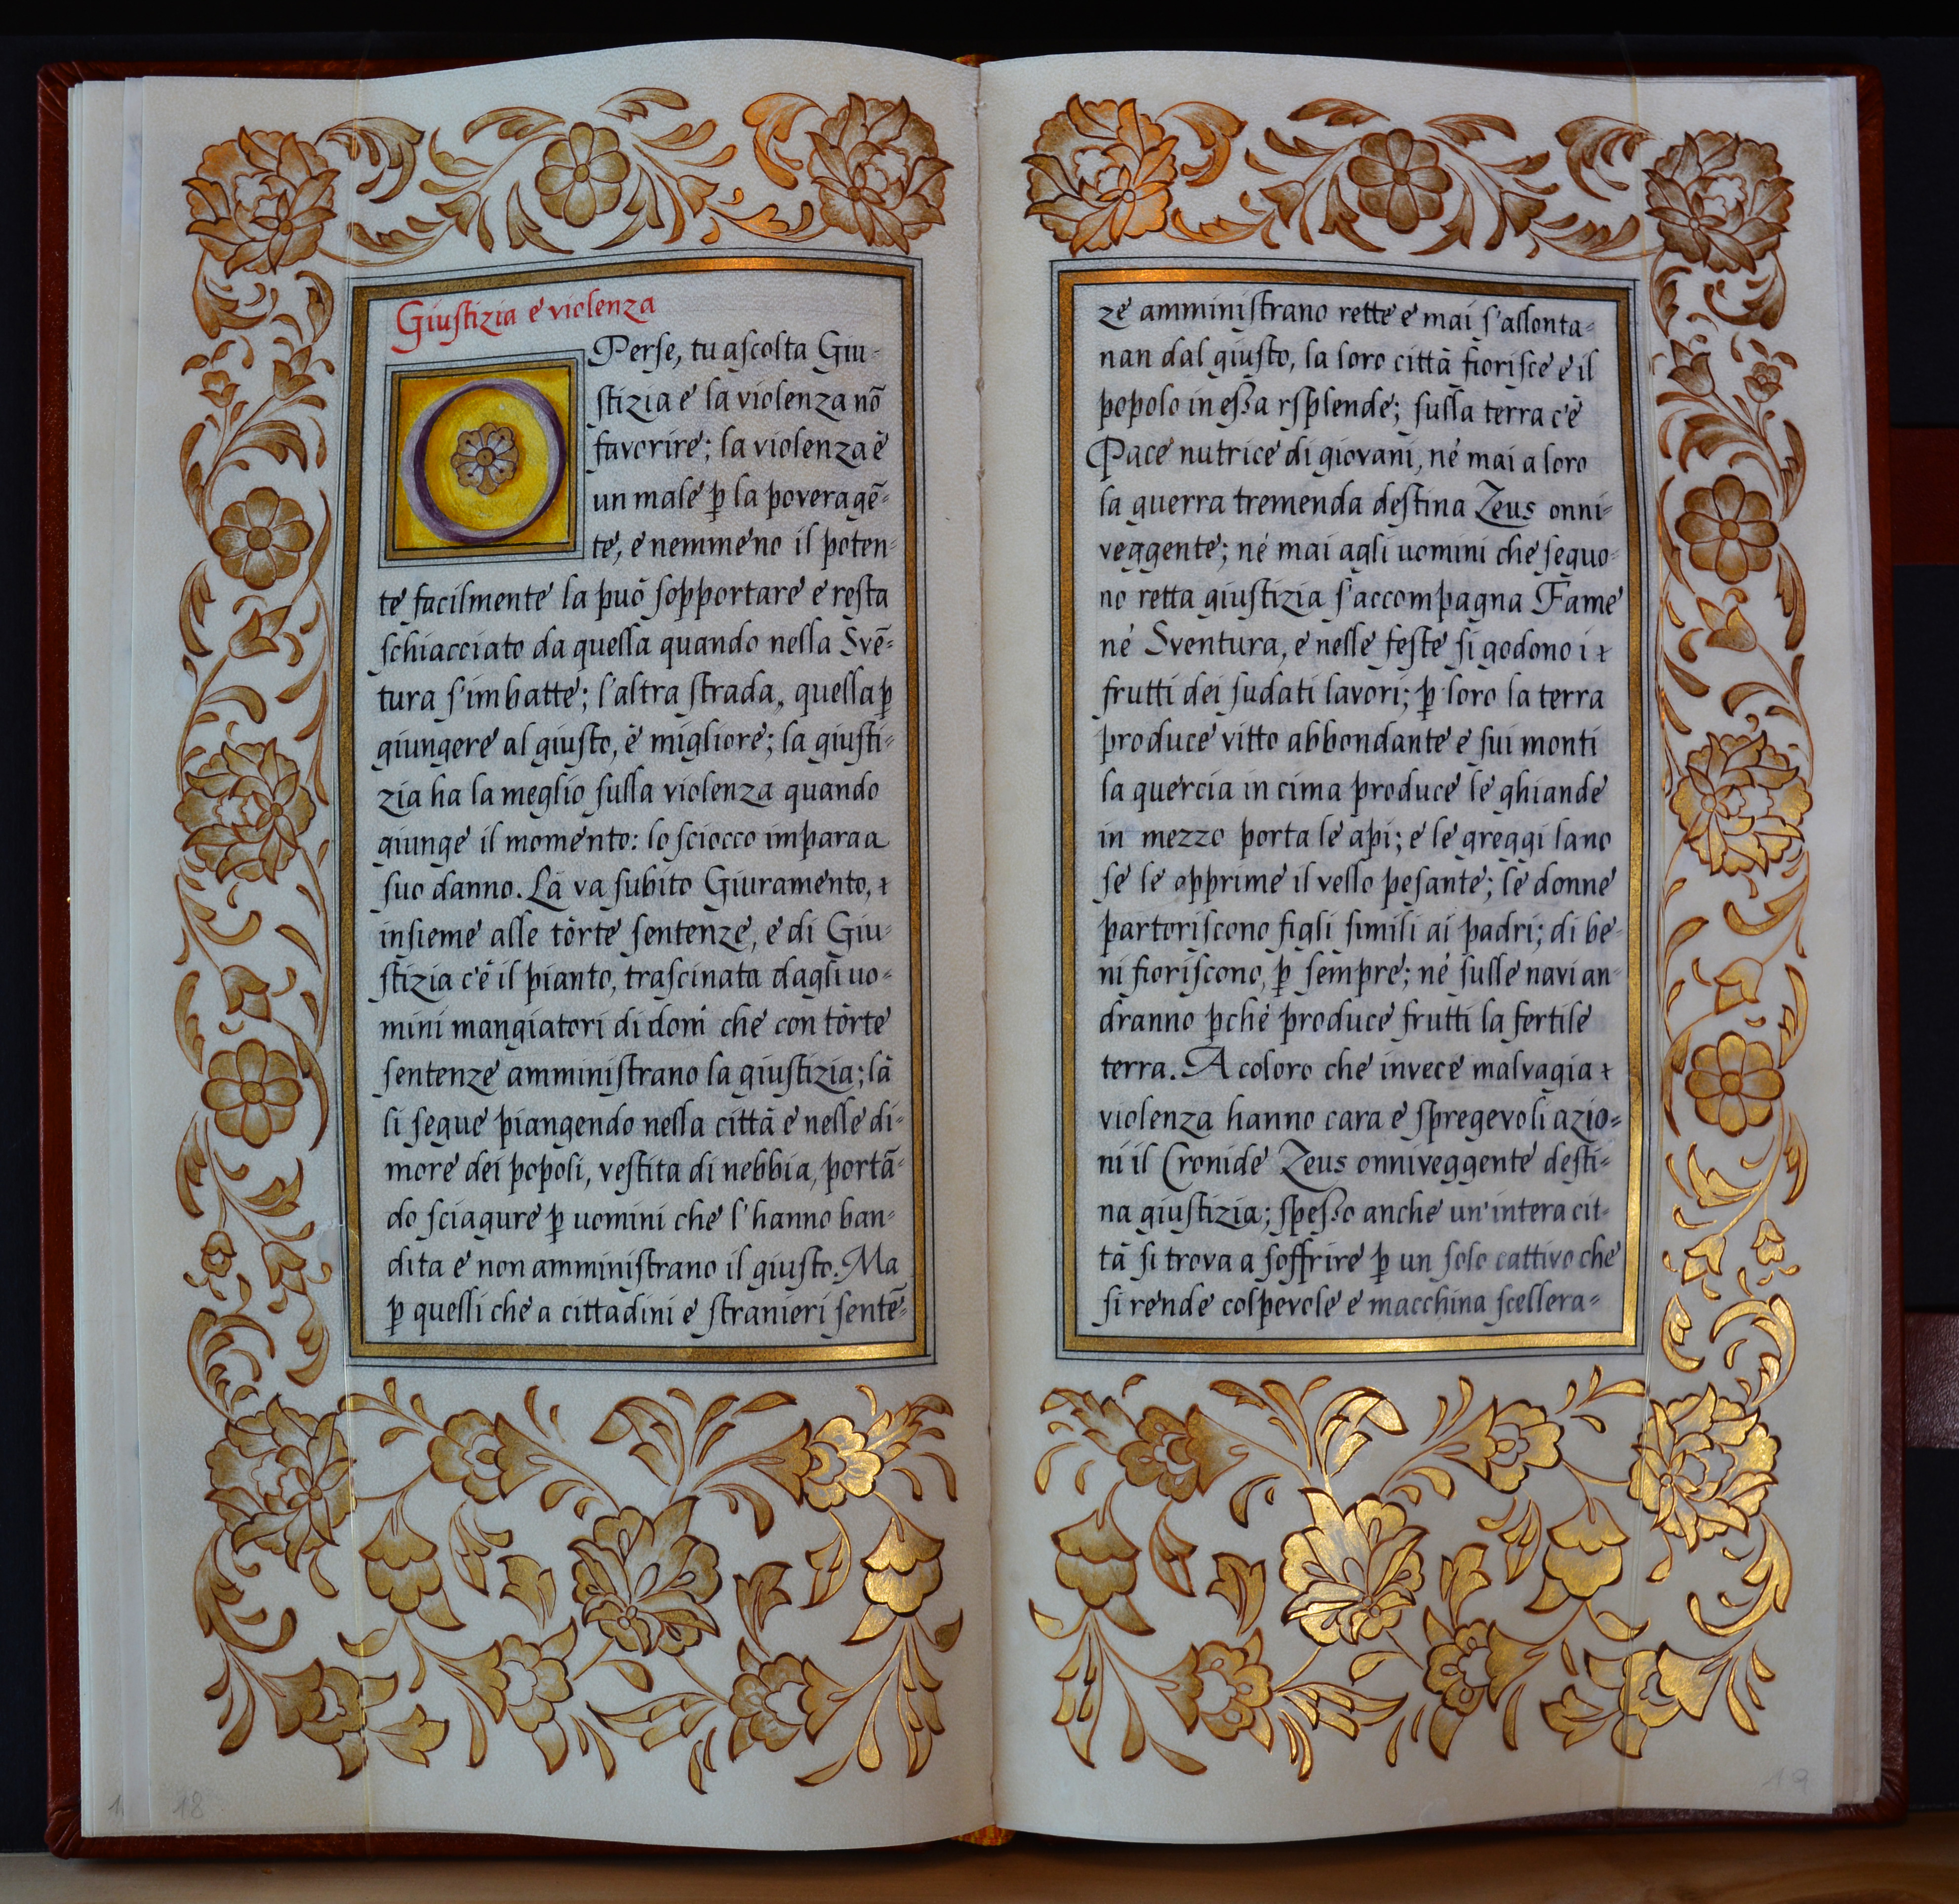 Giustizia e violenza
O Perse, tu ascolta Giu-
stizia e la violenza nō
favorire; la violenza è
un male ꝑ la povera gē-
te, e nemmeno il poten-
te facilmente la può sopportare e resta
schiacciato da quella quando nella Svē-
tura s'imbatte; l'altra strada, quella ꝑ
giungere al giusto, è migliore; la giusti-
zia ha la meglio sulla violenza quando
giunge il momento: lo sciocco impara a
suo danno. Là va subito Giuramento,
insieme alle tòrte sentenze, e di Giu-
stizia c'è il pianto, trascinata dagli uo-
mini mangiatori di doni che con tòrte
sentenze amministrano la giustizia; là
li segue piangendo nella città e nelle di-
more dei popoli, vestita di nebbia, portā-
do sciagure ꝑ uomini che l'hanno ban-
dita e non amministrano il giusto. Ma
ꝑ quelli che a cittadini e stranieri sentē-
ze amministrano rette e mai s'allonta-
nan dal giusto, la loro città fiorisce e il
popolo in essa rsplende; sulla terra c'è
Pace nutrice di giovani, né mai a loro
la guerra tremenda destina Zeus onni-
veggente; né mai agli uomini che seguo-
no retta giustizia s'accompagna Fame
né Sventura, e nelle feste si godono i
frutti dei sudati lavori; ꝑ loro la terra
produce vitto abbondante e sui monti
la quercia in cima produce le ghiande
in mezzo porta le api; e le greggi lano
se le opprime il vello pesante; le donne
partoriscono figli simili ai padri; di be-
ni fioriscono, ꝑ sempre; né sulle navi an-
dranno ꝑché produce frutti la fertile
terra. A coloro che invece malvagia
violenza hanno cara e spregevoli azio-
ni il Cronide Zeus onniveggente desti-
na giustizia; spesso anche un'intera cit-
tà si trova a soffrire ꝑ un solo cattivo che
si rende colpevole e macchina scellera-
18
19